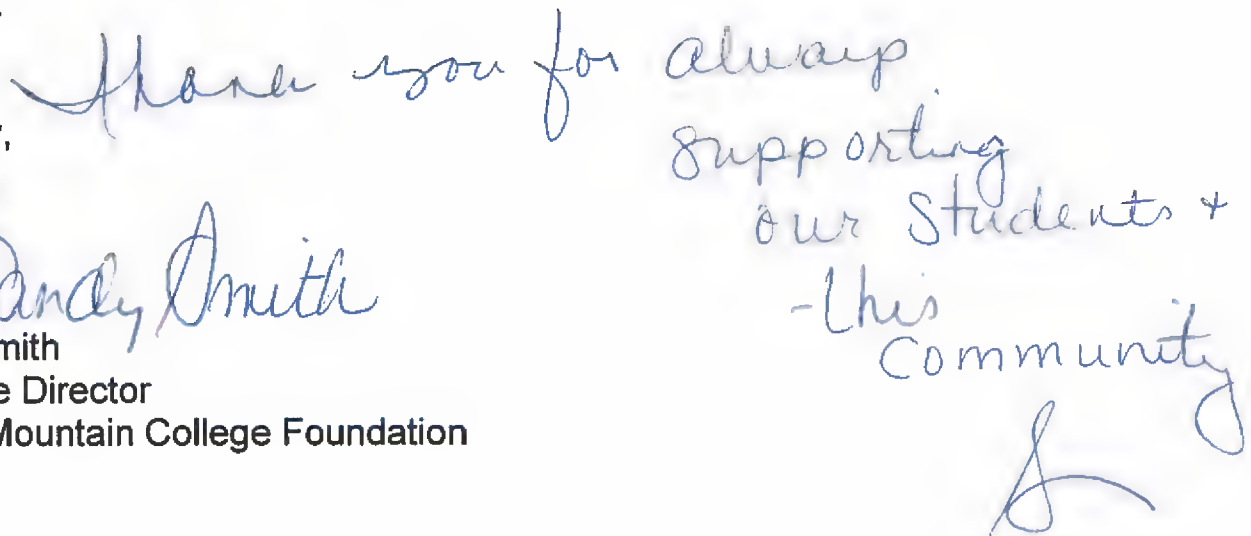 Thank you for always
supporting
our Students +
this
Community
,
andy Smith
mith
e Director
Mountain College Foundation
S